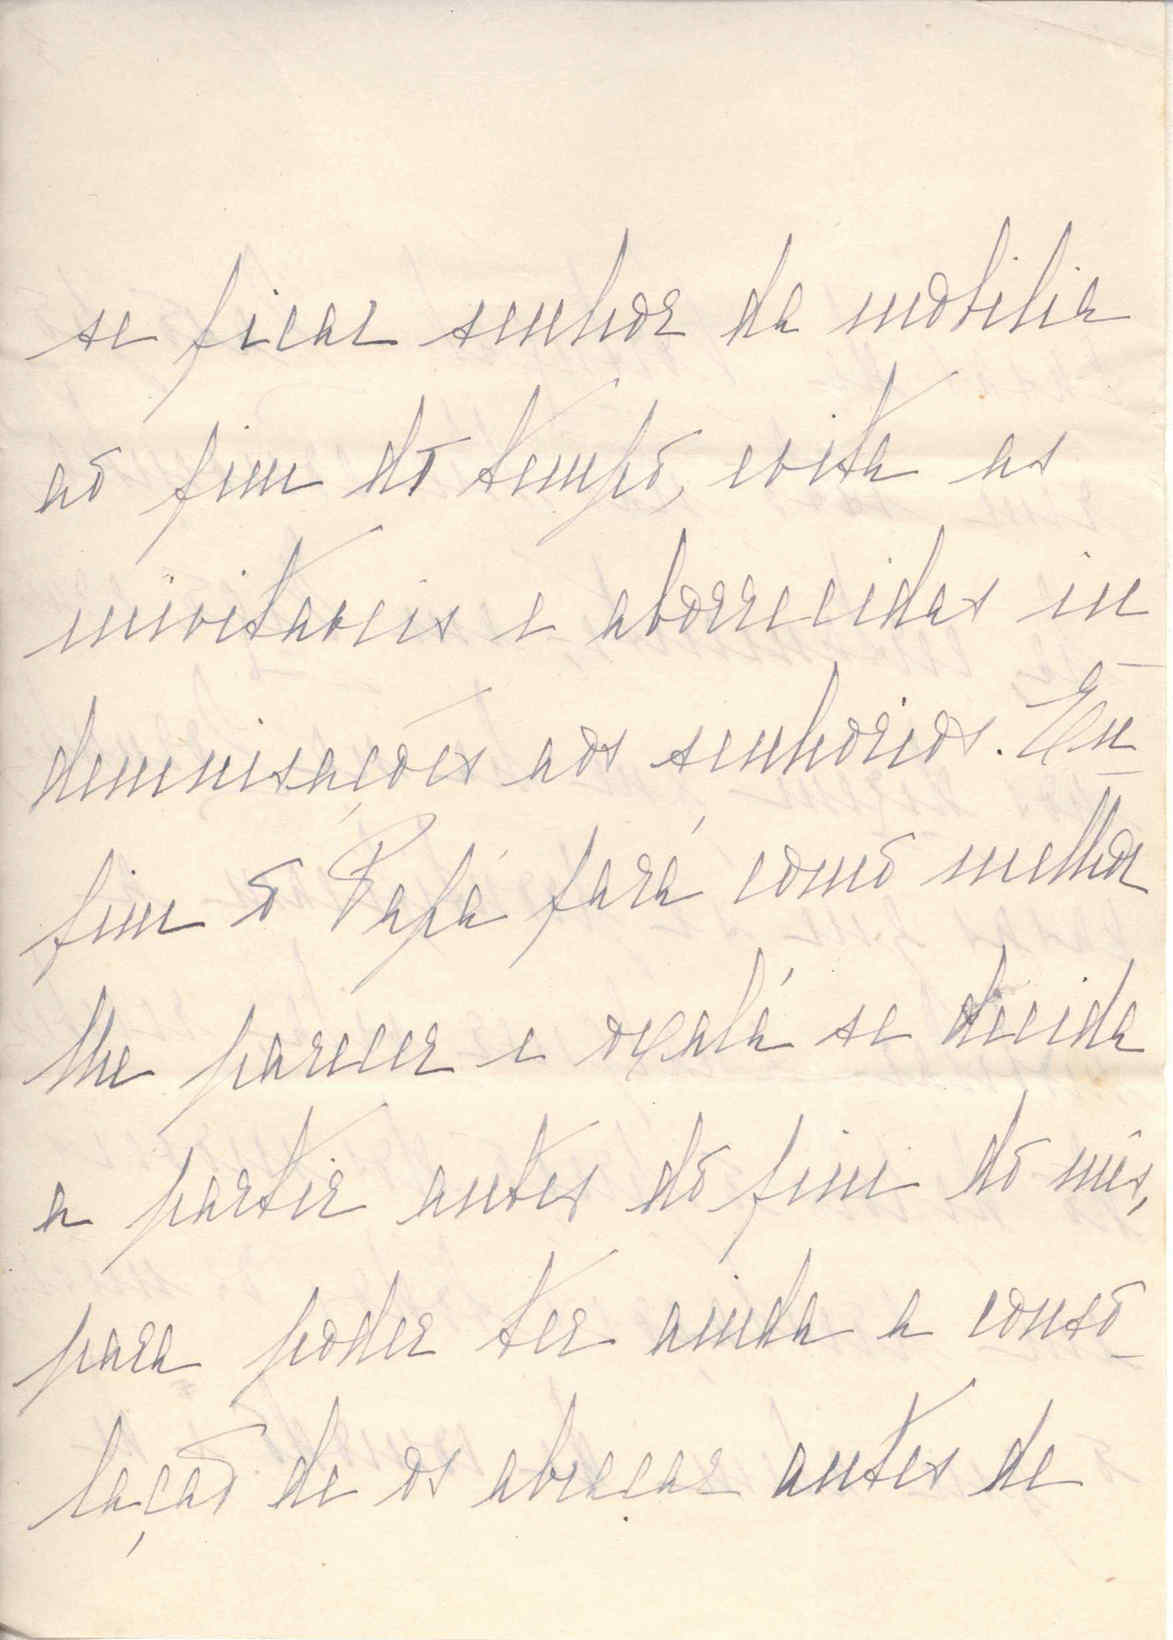 se ficar senhor da mobilia
ao fim do tempo, evita as
inivitaveis e aborrecidas in
demnisações aos senhorios. En-
fim o Papá fará como melhor
lhe parecer e oxalá se decida
a partir antes do fim do mês,
para poder ter ainda a conso-
lação de os abraçar antes de